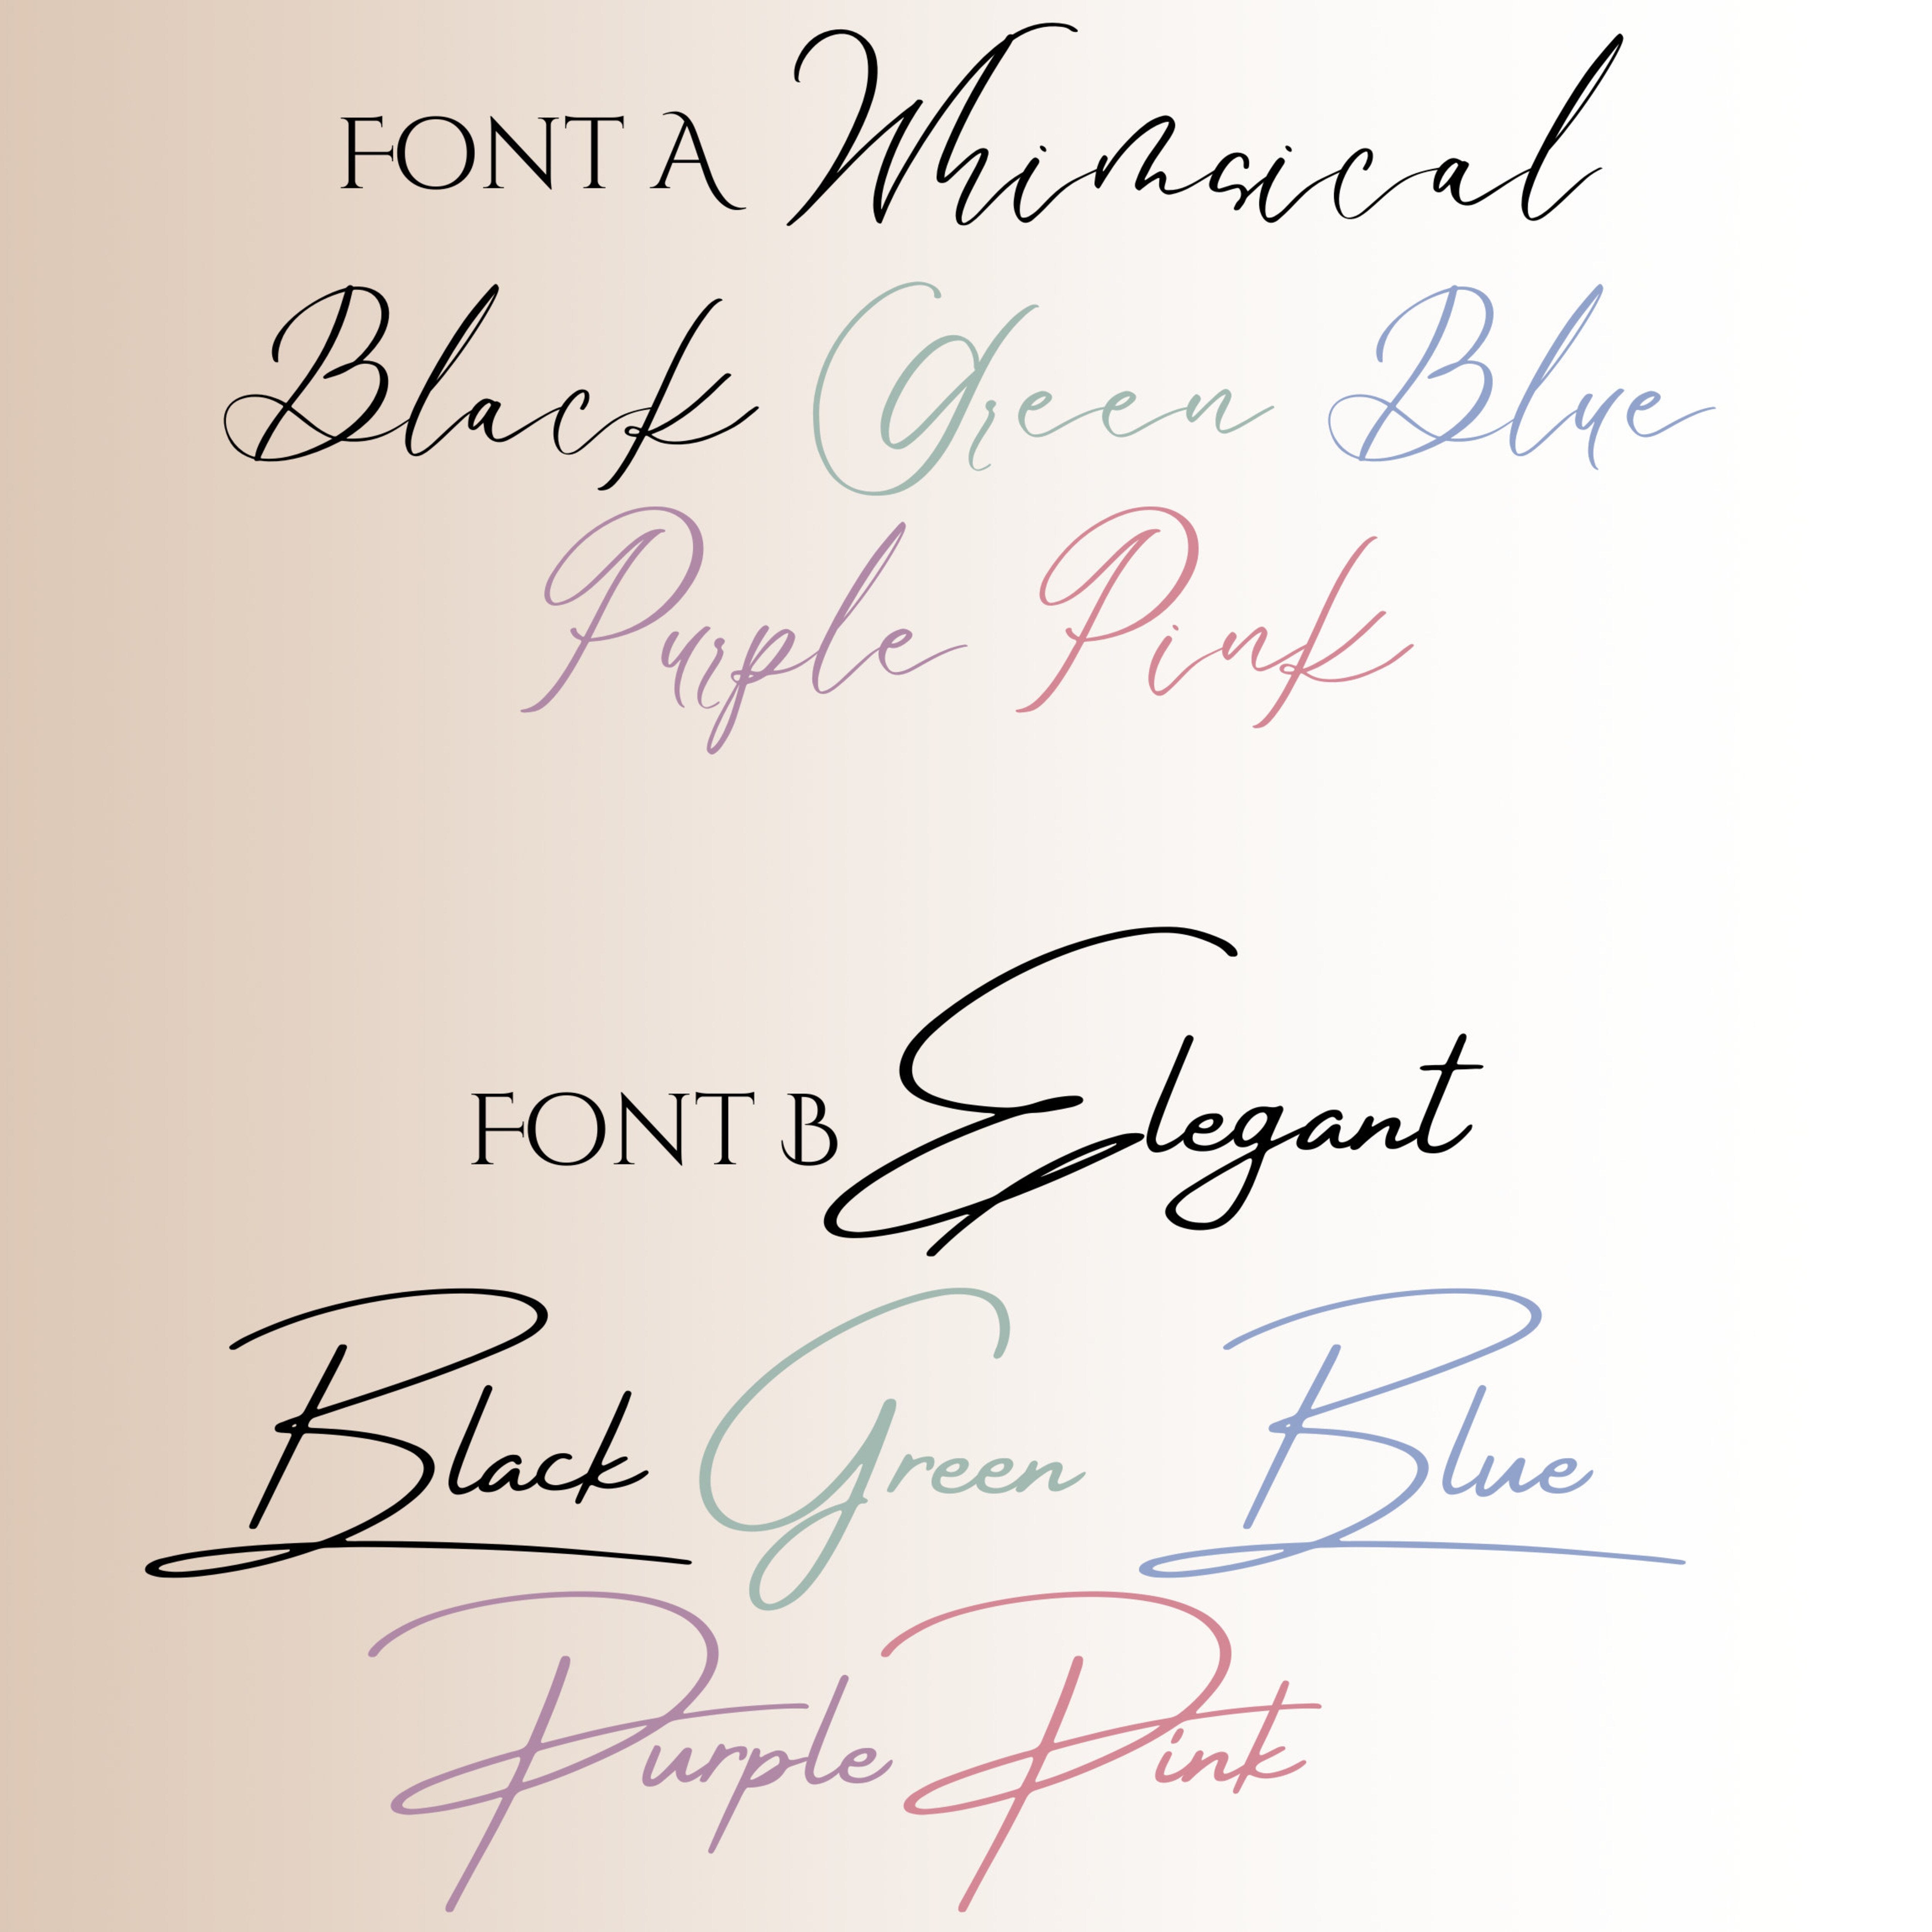 FONT A Whimsical
Black Green Blue
Purple Pink
FONT B Elegant
Black Green Blue
Purple Pink